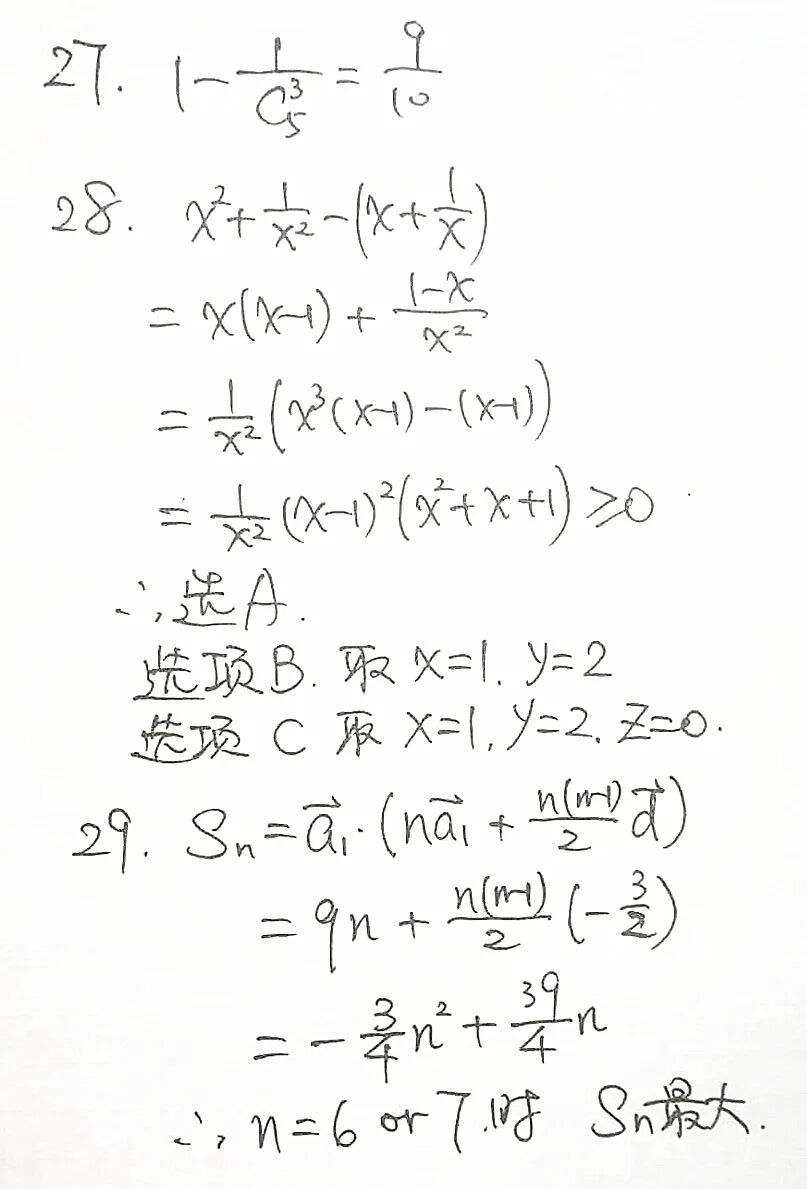 27. 1 - \frac{1}{C_5^3} = \frac{9}{10}
28. x^2 + \frac{1}{x^2} - (x + \frac{1}{x})
= x(x-1) + \frac{1-x}{x^2}
= \frac{1}{x^2}(x^3(x-1) - (x-1))
= \frac{1}{x^2}(x-1)^2(x^2+x+1) ≥ 0
∴选A.
选项B. 取 x=1. y=2
选项 C 取 x=1, y=2. z=0.
29. S_n = \vec{a}_1·(n\vec{a}_1 + \frac{n(n-1)}{2}\vec{d})
= 9n + \frac{n(n-1)}{2}(-\frac{3}{2})
= -\frac{3}{4}n^2 + \frac{39}{4}n
∴ n=6 or 7.时 S_n最大.